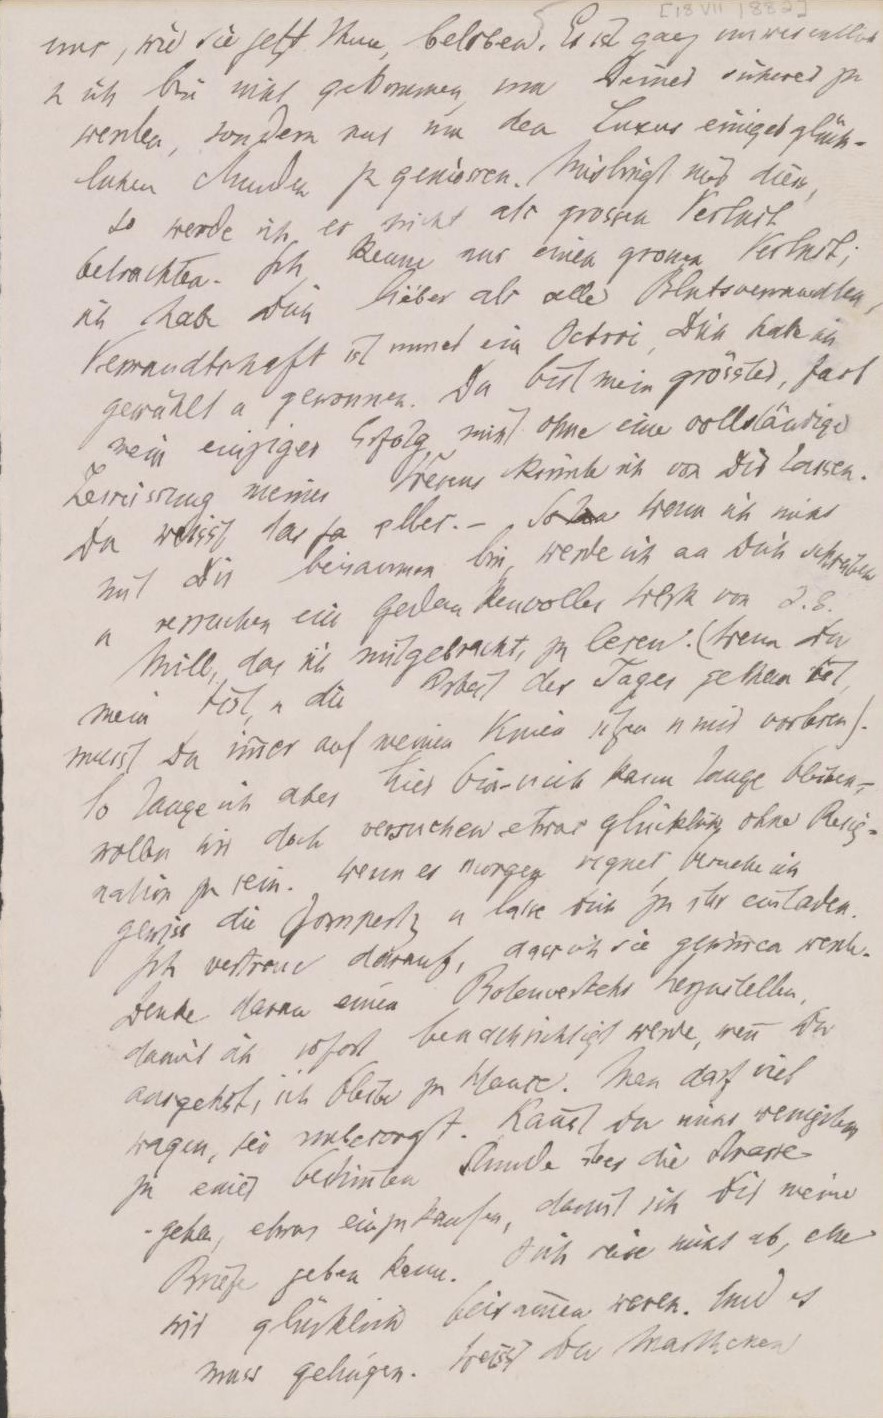 [18 VII 1882]
uns, wie sie jetzt thun, beloben. Es ist ganz unwesentlich
u ich bin nicht gekommen, um Deiner sicherer zu
werden, sondern nur um den Luxus einiger glück-
lichen Stunden zu geniessen. Mislingt mir dies,
so werde ich es nicht als grossen Verlust
betrachten. Ich kenne nur einen grossen Verlust;
ich habe Dich lieber als alle Blutsverwandten,
Verwandtschaft ist immer ein Octroi, Dich habe ich
gewählt u gewonnen. Du bist mein grösster, fast
mein einziger Erfolg, nicht ohne eine vollständige
Zerreissung meines Wesens könnte ich von Dir lassen.
Du weisst das ja selber. – Wenn ich nicht
mit Dir beisammen bin, werde ich an Dich schreiben
u versuchen ein gedankenvolles Werk von J. S.
Mill, das ich mitgebracht, zu lesen. (Wenn Du
mein bist, u die Arbeit des Tages gethan ist,
musst Du immer auf meinen Knien sitzen u mir vorlesen).
So lange ich aber hier bin – u ich kann lange bleiben, –
wollen wir doch versuchen etwas glücklich ohne Resig-
nation zu sein. Wenn es morgen regnet, besuche ich
gewiss die Gompertz u lasse Dich zu ihr einladen.
Ich vertraue darauf, dass ich sie gewinnen werde.
Denke daran einen Botenverkehr herzustellen,
damit ich sofort benachrichtigt werde, wenn Du
ausgehst, ich bleibe zu Hause. Man darf viel
wagen, sei unbesorgt. Kannst Du nicht wenigstens
zu einer bestimmten Stunde über die Strasse
gehen, etwas einzukaufen, damit ich Dir meine
Briefe geben kann. Ich reise nicht ab, ehe
wir glücklich beisammen waren. Und es
muss gelingen. Weisst Du Marthchen